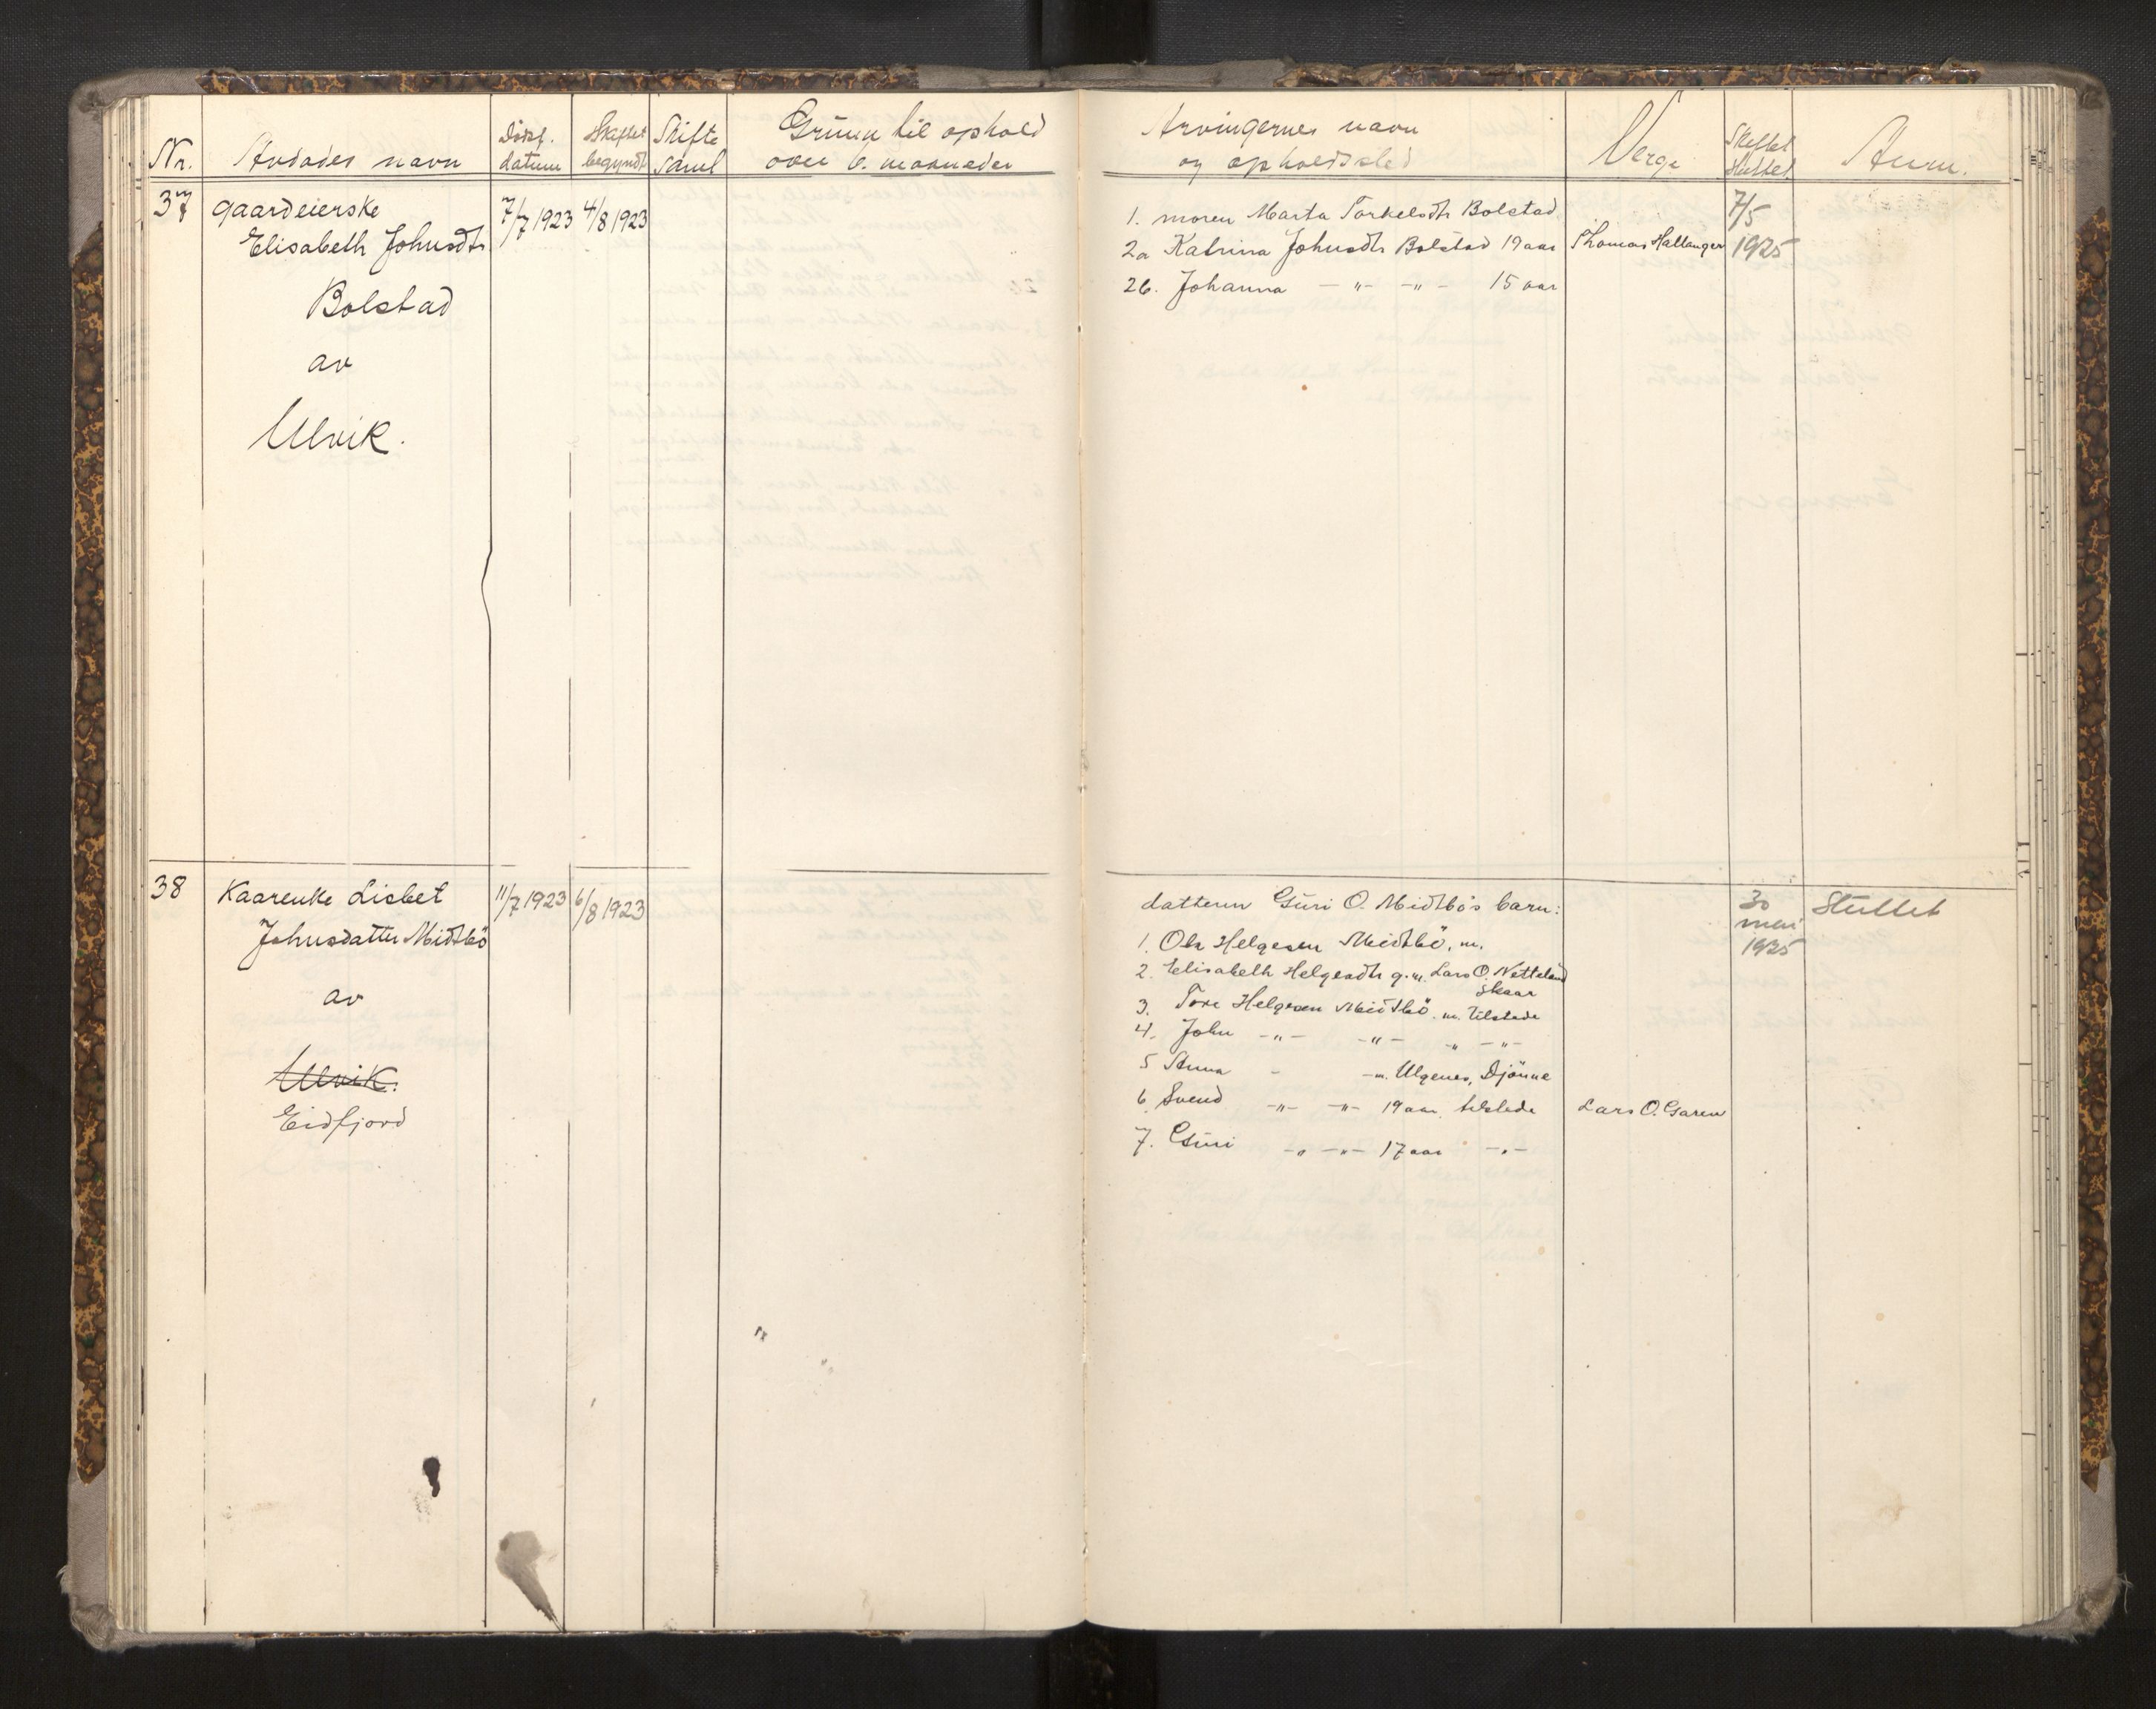 Nr.
Avdødes navn
Dødsf. datum
Skiftet begyndt
Skifte saml
Grunn til ophold
over 6. maaneder
Arvingernes navn
og opholdssted
Verge
Skiftet
sluttet
Anm.
37
gaardeierske
Elisabeth Johnsdtr
Bolstad
av
Ulvik.
7/7 1923
4/8 1923
1. moren Marta Torkelsdtr Bolstad
2a Katrina Johnsdtr Bolstad 19 aar
Thomas Hallanger
2b. Johanna — " — — " — 15 aar
7/5
1925
38
Kaarenke Lisbet
Johnsdatter Midtbö
av
Ulvik.
Eidfjord
11/7 1923
6/8 1923
datteren Guri O. Midtbö's barn:
1. Ola Helgesen Midtbö, m.
2. Elisabeth Helgesdtr g. m. Lars O. Netteland
Skaar
3. Tore Helgesen Midtbö. m. tilstede
4. John — " — — " — " — " —
5 Anna - — m. Ulgenes, Djönne
6 Svend — " — — " — 19 aar, tilstede
Lars O. Garen
7. Guri — " — " — 17 aar — " —
30
mai
1925
Sluttet